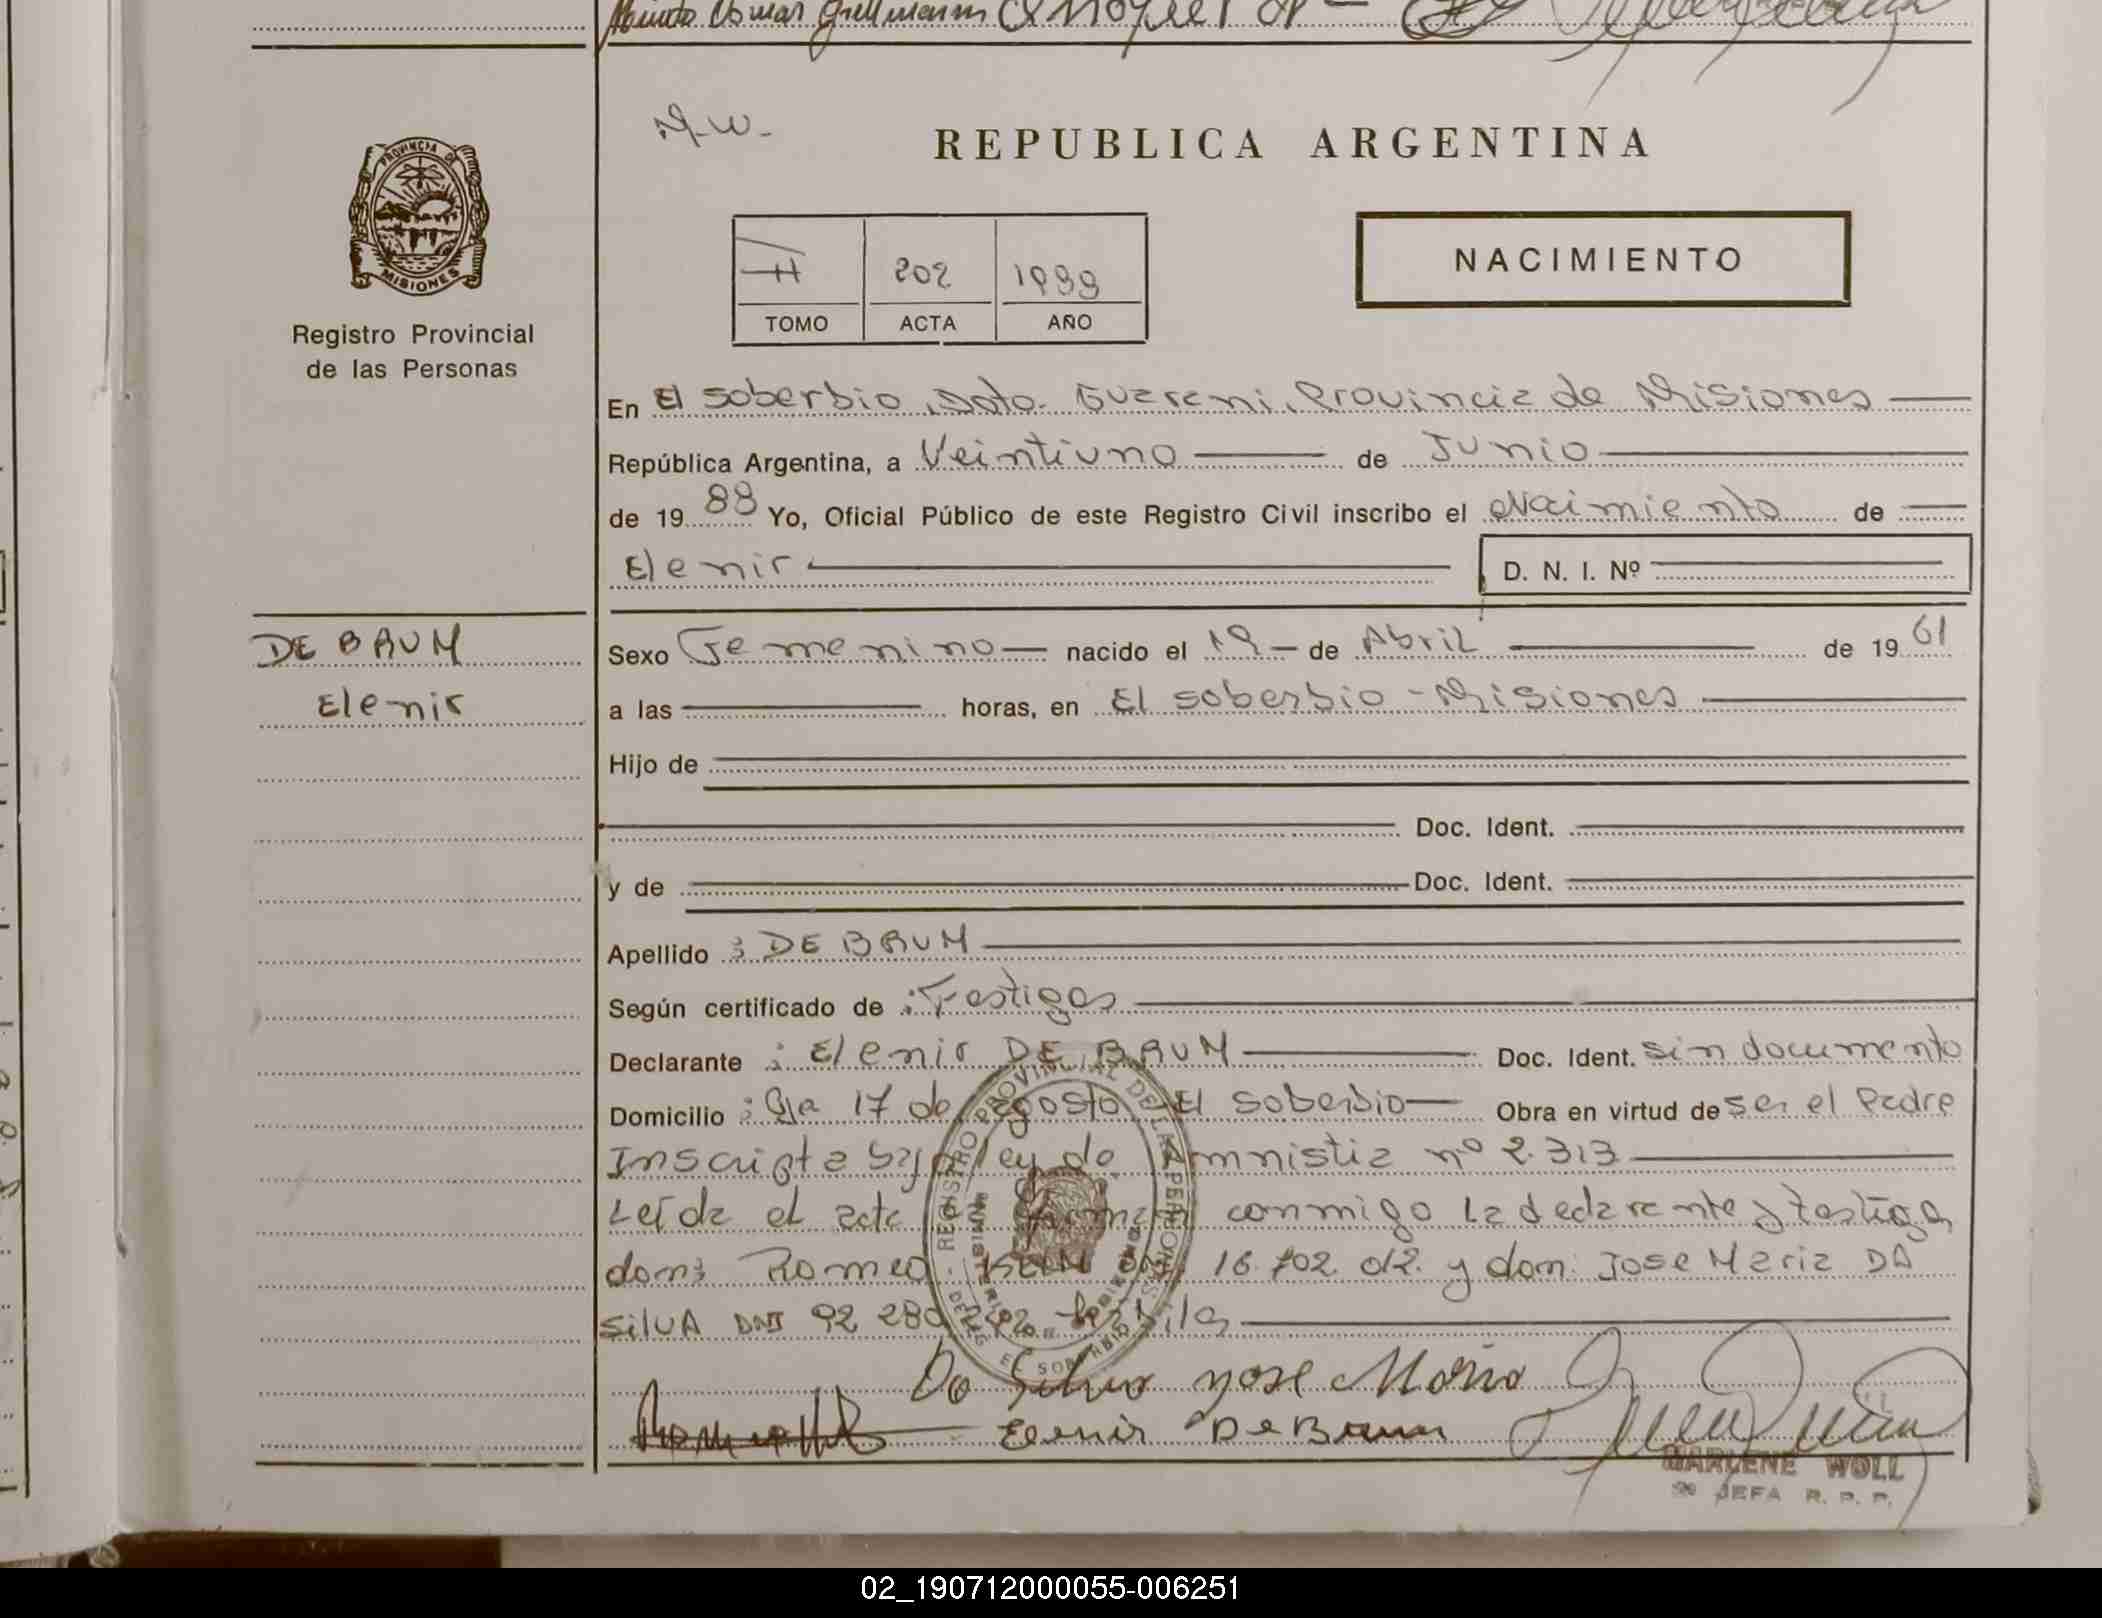 M.W.
REPUBLICA ARGENTINA
PROVINCIA DE
MISIONES
Registro Provincial
de las Personas
II 202 1988
TOMO ACTA AÑO
NACIMIENTO
En El Soberbio, Dpto. Guarani, Provincia de Misiones
República Argentina, a Veintiuno de Junio
de 1988 Yo, Oficial Público de este Registro Civil inscribo el Nacimiento de
Elenir D. N. I. Nº
DE BAUM
Elenir
Sexo Femenino nacido el 19 de Abril de 1961
a las horas, en El Soberbio - Misiones
Hijo de
Doc. Ident.
y de Doc. Ident.
Apellido : DE BAUM
Según certificado de : Testigos
Declarante : Elenir DE BAUM Doc. Ident. sin documento
Domicilio : Cja 17 de agosto - El Soberbio Obra en virtud de ser el Padre
Inscripta bajo ley de Amnistia nº 2.313
Leída el acta la firman conmigo la declarante y testigos
don: Romeo DNI 16.702.012 y don: Jose Maria DA
SilVA DNI 92 280
Da Silva Jose Maria
Elenir De Baum
MARLENE WOLL
JEFA R. P. P.
REGISTRO PROVINCIAL DE LAS PERSONAS
EL SOBERBIO
02_190712000055-006251